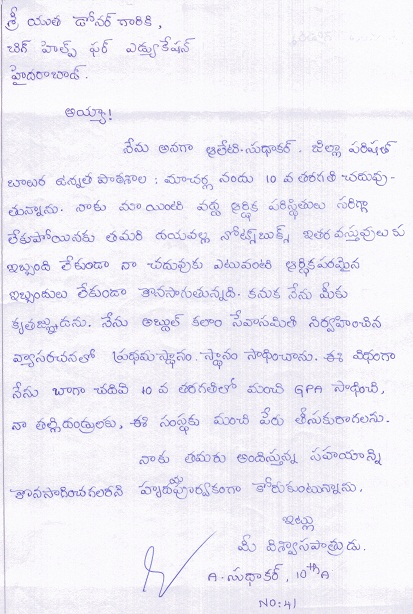 శ్రీ యుత డోనర్ గారికి,
చిర్ హెల్ప్ ఫర్ ఎడ్యుకేషన్
హైదరాబాద్.
అయ్యా!
నేను అనగా ఆతేటి.సుధాకర్. జిల్లా పరిషత్
బాలుర ఉన్నత పాఠశాల : మాచర్ల నందు 10 వ తరగతి చదువు-
తున్నాను. నాకు మా యింటి వద్ద ఆర్థిక పరిస్థితులు సరిగ్గా
లేకపోయినకు తమరి దయవల్ల నోట్స్‌బుక్స్ ఇతర వస్తువులు కు
ఇబ్బంది లేకుండా నా చదువుకు ఎటువంటి ఆర్థికపరమైన
ఇబ్బందులు లేకుండా కొనసాగుతున్నది. కనుక నేను మీకు
కృతజ్ఞుడను. నేను అబ్దుల్ కలాం సేవాసమితి నిర్వహించిన
వ్యాసరచనలో ప్రథమస్థానం. స్థానం సాధించాను. ఈ విధంగా
నేను బాగా చదివి 10 వ తరగతిలో మంచి GPA సాధించి,
నా తల్లిదండ్రులకు, ఈ సంస్థకు మంచి పేరు తీసుకురాగలను.
నాకు తమరు అందిస్తున్న సహయాన్ని
కొనసాగించగలరని హృదయపూర్వకంగా కోరుకుంటున్నాను.
ఇట్లు
మీ విశ్వాసపాత్రుడు.
A.సుధాకర్, 10th A
NO:41